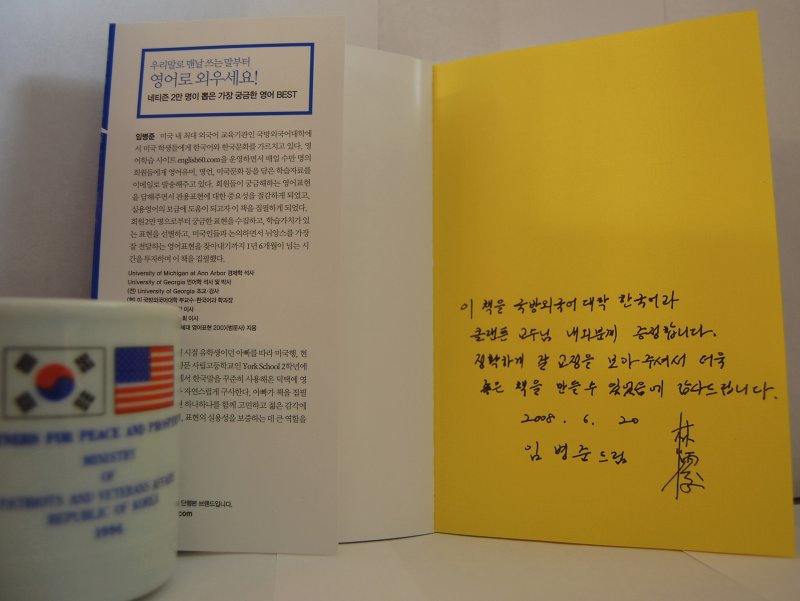 우리말로 맨날 쓰는 말부터
영어로 외우세요!
네티즌 2만 명이 뽑은 가장 궁금한 영어 BEST
임병준 미국 내 최대 외국어 교육기관인 국방외국어대학에
서 미국 학생들에게 한국어와 한국문화를 가르치고 있다. 영
어학습 사이트 english60.com을 운영하면서 매일 수만 명의
회원들에게 영어유머, 명언, 미국문화 등을 담은 학습자료를
이메일로 발송해주고 있다. 회원들이 궁금해하는 영어표현
을 답해주면서 관용표현에 대한 중요성을 절감하게 되었고,
실용영어의 보급에 도움이 되고자 이 책을 집필하게 되었다.
회원 2만 명으로부터 궁금한 표현을 수집하고, 학습가치가 있
는 표현을 선별하고, 미국인들과 논의하면서 뉘앙스를 가장
잘 전달하는 영어표현을 찾아내기까지 1년 6개월이 넘는 시
간을 투자하며 이 책을 집필했다.
University of Michigan at Ann Arbor 경제학 석사
University of Georgia 언어학 석사 및 박사
(전) University of Georgia 초교·강사
(현) 미 국방외국어대학 부교수·한국어과 학과장
이사
회 이사
세대 영어표현 200》(범문사) 지음
시절 유학생이던 아빠를 따라 미국행, 현
문 사립고등학교인 York School 2학년에
에서 한국말을 꾸준히 사용해온 덕택에 영
자연스럽게 구사한다. 아빠가 책을 집필
현 하나하나를 함께 고민하고 젊은 감각에
, 표현의 실용성을 보증하는 데 큰 역할을
단행본 브랜드입니다.
.com
이 책을 국방외국어 대학 한국어과
클랜튼 교수님 내외분께 증정합니다.
정확하게 잘 교정을 보아 주셔서 더욱
좋은 책을 만들 수 있었음에 감사드립니다.
2008. 6. 20
임 병준 드림
林
TNERS FOR PEACE AND PROSPE
MINISTRY
OF
PATRIOTS AND VETERANS AFFAI
REPUBLIC OF KOREA
1996